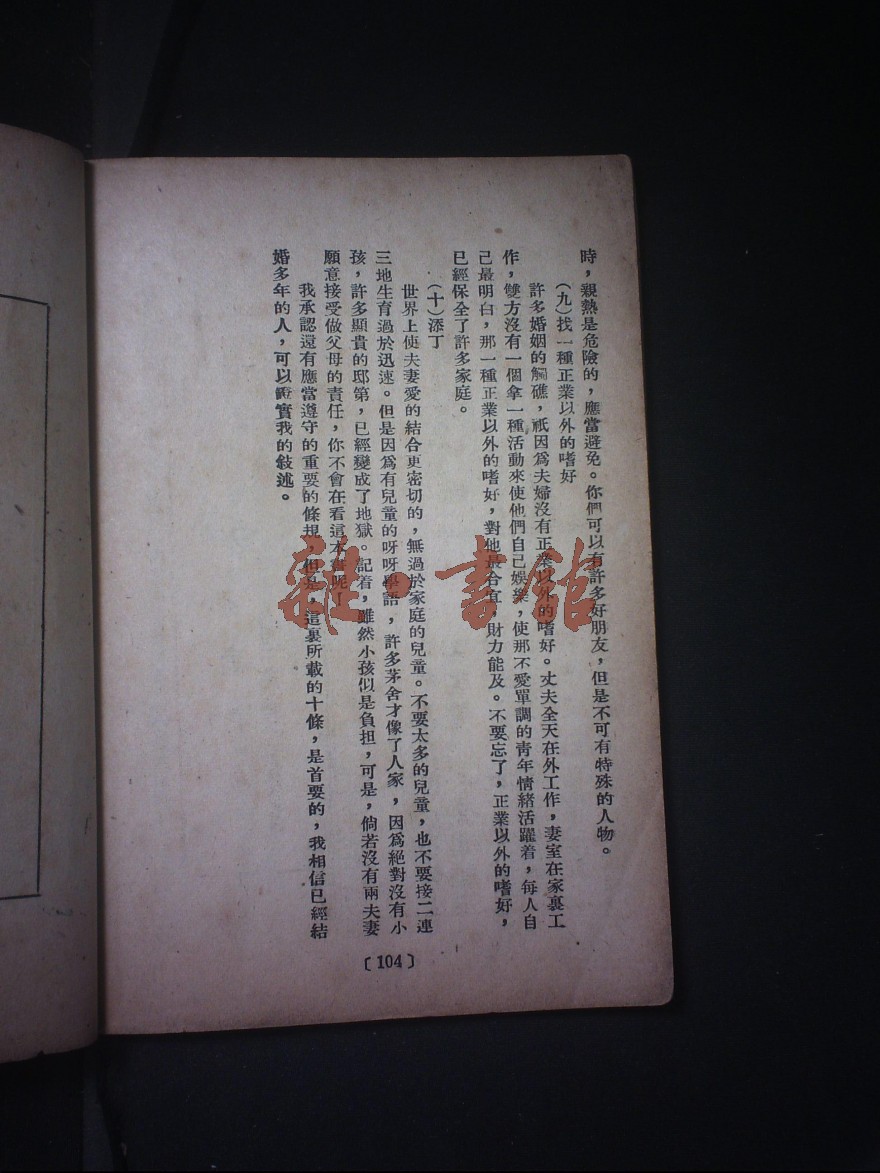 時，親熱是危險的，應當避免。你們可以有許多好朋友，但是不可有特殊的人物。
（九）找一種正業以外的嗜好
許多婚姻的觸礁，祇因爲夫婦沒有正業以外的嗜好。丈夫全天在外工作，妻室在家裏工
作，雙方沒有一個拿一種活動來使他們自己娛樂，使那不愛單調的青年情緒活躍着，每人自
己最明白，那一種正業以外的嗜好，對他最合宜，財力能及。不要忘了，正業以外的嗜好，
已經保全了許多家庭。
（十）添丁
世界上使夫妻愛的結合更密切的，無過於家庭的兒童。不要太多的兒童，也不要接二連
三地生育過於迅速。但是因爲有兒童的呀呀學語，許多茅舍才像了人家，因爲絕對沒有小
孩，許多顯貴的邸第，已經變成了地獄。記着，雖然小孩似是負担，可是，倘若沒有兩夫妻
願意接受做父母的責任，你不會在看這本書呢！
我承認還有應當遵守的重要的條規，但是，這裏所載的十條，是首要的，我相信已經結
婚多年的人，可以證實我的敍述。
〔104〕
雜·書館